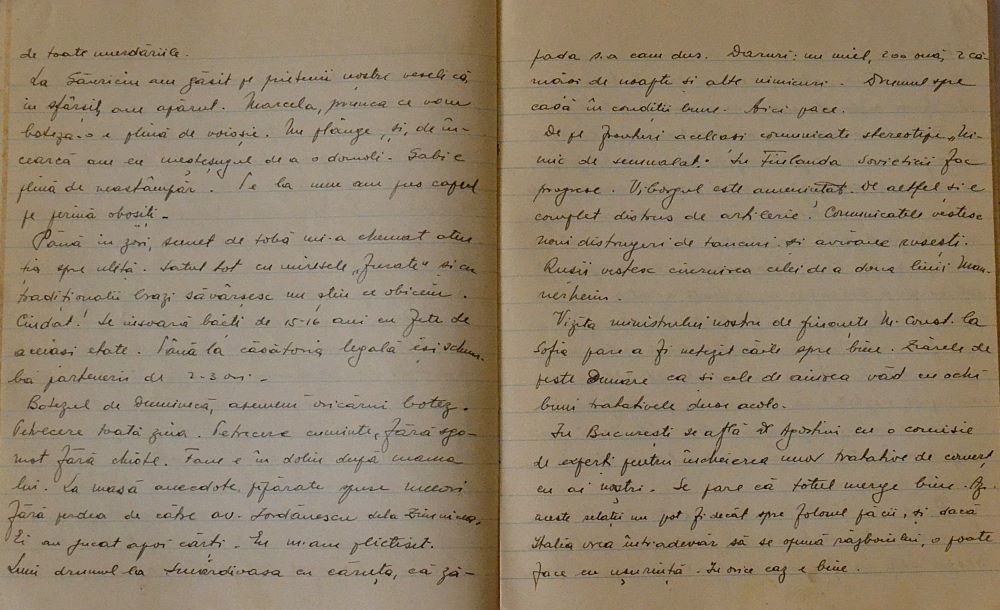 de toate murdăriile.
La Găvriciu am găsit pe prietenii noștri veseli că
în sfârșit, am apărut. Marcela, prunca ce vom
boteza-o e plină de voioșie. Nu plânge, și, de în-
cearcă am eu meșteșugul de a o domoli. Gabi e
plină de neastâmpăr. Pe la unu am pus capul
pe pernă obosiți.
Până în zori, sunet de tobă mi-a chemat aten-
ția spre uliță. Satul tot cu miresele „furate" și cu
tradiționalii brazi săvârșesc nu știu ce obiceiu.
Ciudat! Se însoară băeți de 15-16 ani cu fete de
aceiași etate. Până la căsătoria legală își schim-
bă partenerii de 2-3 ori.-
Botezul de Duminecă, asemeni oricărui botez.
Petrecere toată ziua. Petrecere cuminte, fără sgo-
mot fără chiote. Fane e în doliu după mama
lui. La masă anecdote, pipărate spuse uneori
fără perdea de către av. Iordănescu dela Zimnicea.
Ei au jucat apoi cărți. Eu m-am plictisit.
Luni drumul la Smârdioasa cu căruța, că ză-
pada s-a cam dus. Daruri: un miel, 200 ouă, 2 că-
măși de noapte și alte nimicuri. Drumul spre
casă în condiții bune. Aici pace.
De pe fronturi aceleași comunicate stereotipe „Ni-
mic de semnalat." În Finlanda Sovieticii fac
progrese. Viborgul este amenințat. De altfel și e
complet distrus de artilerie. Comunicatele vestesc
noui distrugeri de tancuri și avioane rusești.
Rușii vestesc ciuruirea celei de a doua linii Man-
nerheim.
Vizita ministrului nostru de finanțe M. Const. la
Sofia pare a fi netezit căile spre bine. Ziarele de
peste Dunăre ca și cele de aiurea văd cu ochi
buni tratativele duse acolo.
În București se află Agostini cu o comisie
de experți pentru încheierea unor tratative de comerț
cu ai noștri. Se pare că totul merge bine.
aceste relații nu pot fi decât spre folosul păcii, și dacă
Italia vrea într'adevăr să se opună războiului, o poate
face cu ușurință. În orice caz e bine.